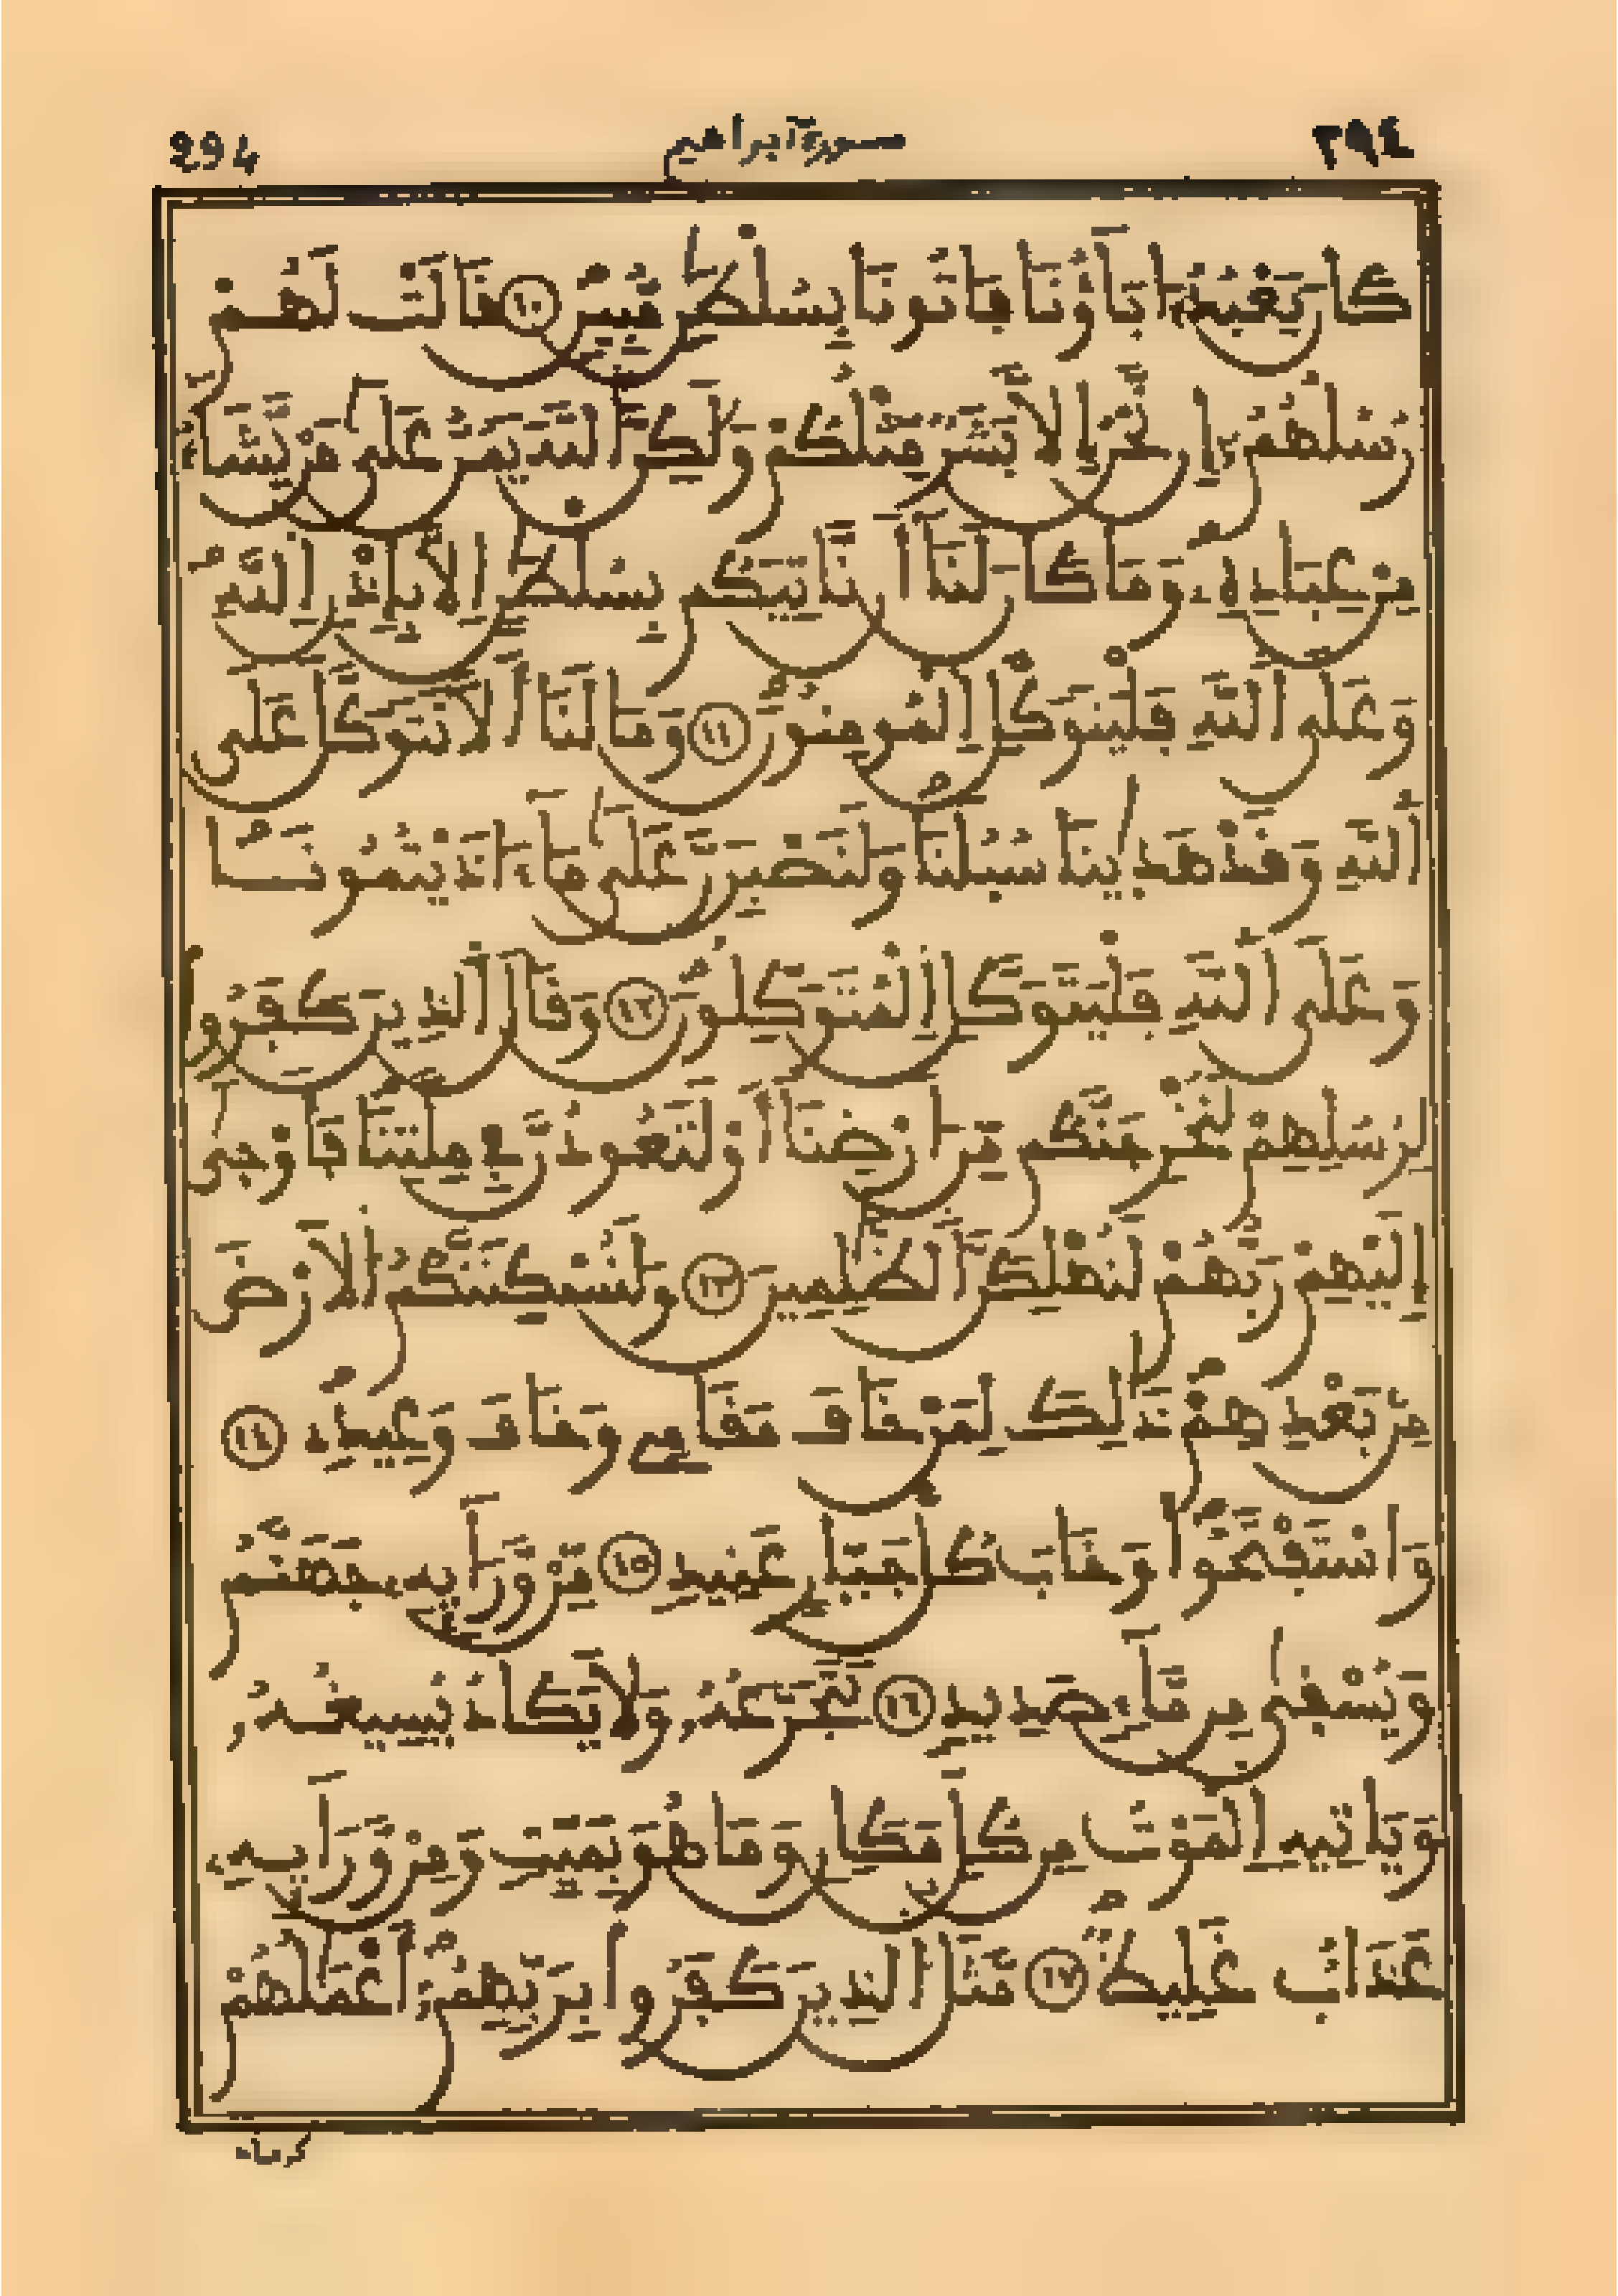 ٢٩٤ سورة ابراهيم 294
كَانَ يَعْبُدُ ءَابَآؤُنَا فَاتُونَا بِسُلْطَٰنٍ مُّبِينٍ ١٠ قَالَتْ لَهُمْ
رُسُلُهُمُۥٓ إِن نَّحْنُ إِلَّا بَشَرٌ مِّثْلُكُمْ وَلَٰكِنَّ اَللَّهَ يَمُنُّ عَلَىٰ مَنْ يَّشَآءُ
مِنْ عِبَادِهِۦ وَمَا كَانَ لَنَآ أَن نَّاتِيَكُم بِسُلْطَٰنٍ اِلَّا بِإِذْنِ اِللَّهِ
وَعَلَى اَللَّهِ فَلْيَتَوَكَّلِ اِلْمُومِنُونَ ١١ وَمَا لَنَآ أَلَّا نَتَوَكَّلَ عَلَى
اَللَّهِ وَقَدْ هَدَىٰنَا سُبُلَنَا وَلَنَصْبِرَنَّ عَلَىٰ مَآ ءَاذَيْتُمُونَا
وَعَلَى اَللَّهِ فَلْيَتَوَكَّلِ اِلْمُتَوَكِّلُونَ ١٢ وَقَالَ اَلَّذِينَ كَفَرُواْ
لِرُسُلِهِمْ لَنُخْرِجَنَّكُم مِّنَ اَرْضِنَآ أَوْ لَتَعُودُنَّ فِي مِلَّتِنَا فَأَوْحَىٰٓ
إِلَيْهِمْ رَبُّهُمْ لَنُهْلِكَنَّ اَلظَّٰلِمِينَ ١٣ وَلَنُسْكِنَنَّكُمُ اُلَارْضَ
مِنۢ بَعْدِهِمْ ذَٰلِكَ لِمَنْ خَافَ مَقَامِي وَخَافَ وَعِيدِۦ ١٤
وَاسْتَفْتَحُواْ وَخَابَ كُلُّ جَبَّارٍ عَنِيدٍ ١٥ مِّنْ وَّرَآئِهِۦ جَهَنَّمُ
وَيُسْقَىٰ مِن مَّآءٍ صَدِيدٍ ١٦ يَتَجَرَّعُهُۥ وَلَا يَكَادُ يُسِيغُهُۥ
وَيَاتِيهِ اِلْمَوْتُ مِن كُلِّ مَكَانٍ وَمَا هُوَ بِمَيِّتٍ وَمِنْ وَّرَآئِهِۦ
عَذَابٌ غَلِيظٌ ١٧ مَّثَلُ اُلَّذِينَ كَفَرُواْ بِرَبِّهِمُۥٓ أَعْمَٰلُهُمْ
كرماد